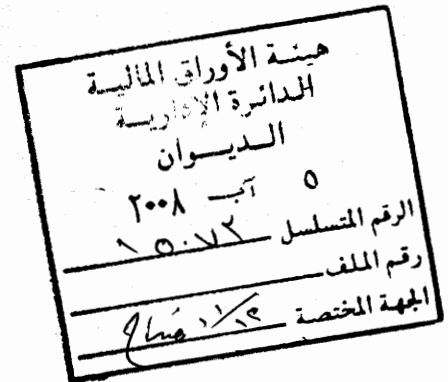 هيئة الأوراق المالية
الدائرة الإدارية
الديوان
٥ آب ٢٠٠٨
الرقم المتسلسل ١٥٠٧٢
رقم الملف
الجهة المختصة